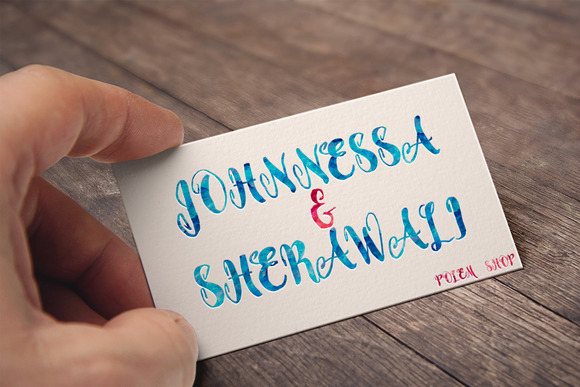 JOHNNESSA
&
SHERAWALI
POIEM SHOP